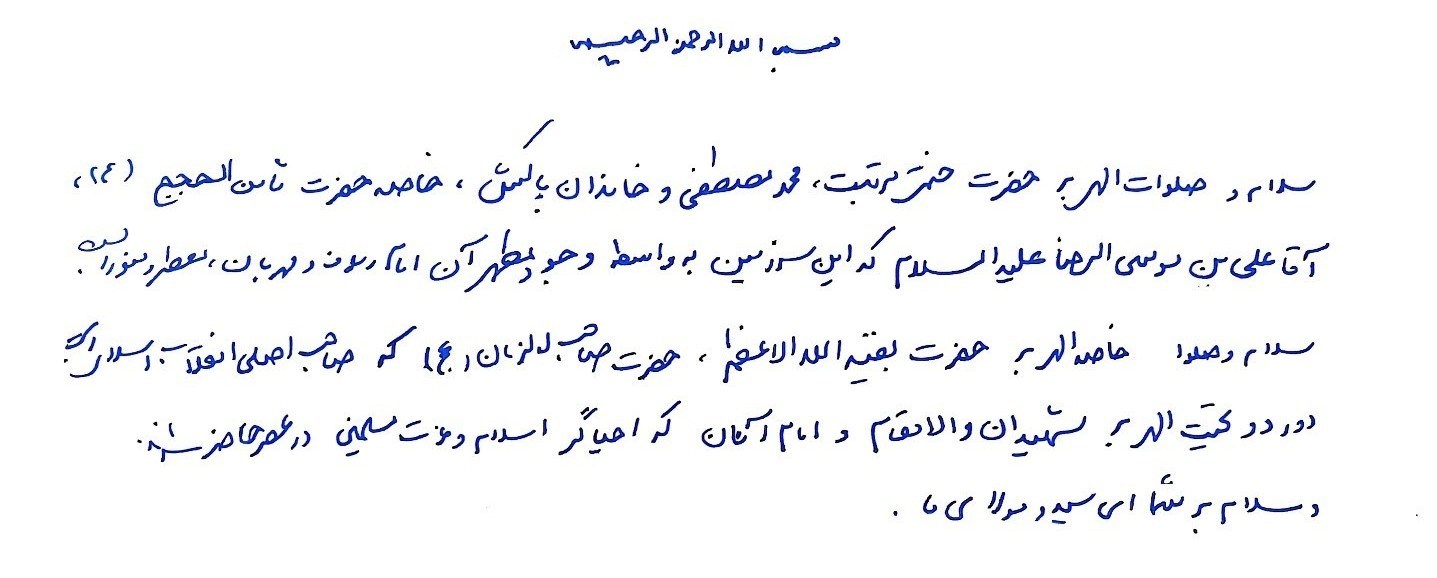 بسم الله الرحمن الرحیم
سلام و صلوات الهی بر حضرت ختمی مرتبت، محمد مصطفی و خاندان پاکش، خاصه حضرت ثامن الحجج (ع)،
آقا علی بن موسی الرضا علیه السلام که این سرزمین به واسطه وجود مطهر آن امام رئوف و مهربان، معطر و منور است.
سلام و صلوا خاصه الهی بر حضرت بقیه الله الاعظم، حضرت صاحب الزمان (عج) که صاحب اصلی انقلاب اسلامی است
درود و تحیت الهی بر شهیدان والامقام و امام آنان که احیاگر اسلام و عزت مسلمین در عصر حاضر شدند.
و سلام بر شما ای سید و مولای ما.